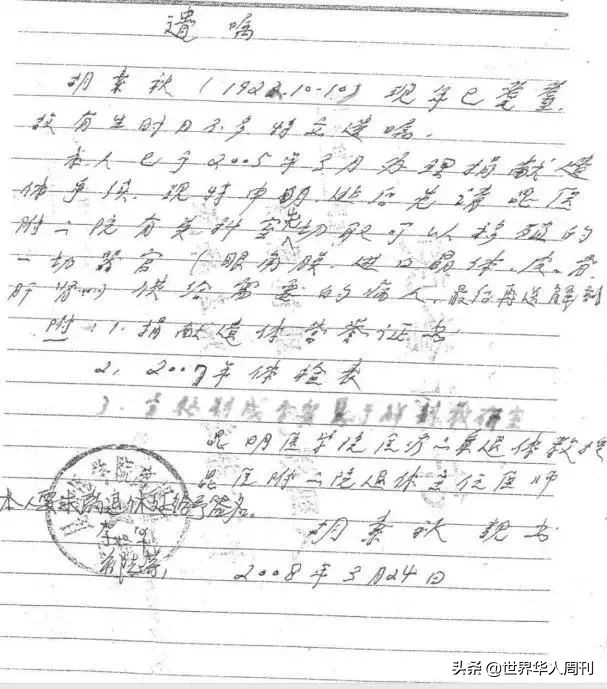 遗嘱
胡素秋(1922.10-10)现年已耄耋,
故有生时日不多特立遗嘱.
本人已于2005年3月办理捐献遗
体手续.现特申明.此后先请昆医
附二院有关科室先切取可以移植的
一切器官(眼角膜.进口晶体.皮.骨.
肝肾)供给需要的病人.最后再送解剖
附:1.捐献遗体荣誉证书
2.2007年体检表
3.
昆明医学院医疗二系退休教授
昆医附二院退休主任医师
本人要求 退休 给予签名.
胡素秋 亲书
2008年3月24日
头条@世界华人周刊